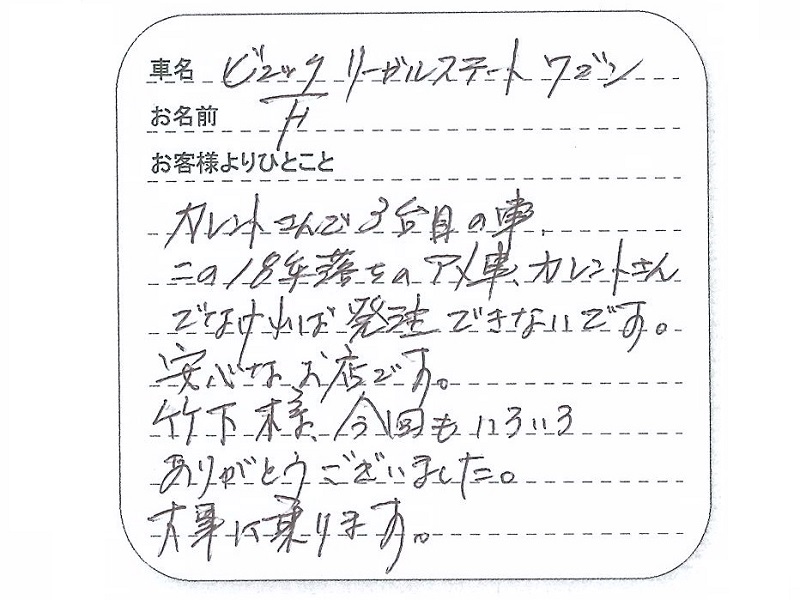 車名 ビュック リーガルステートワゴン
お名前 H
お客様よりひとこと
カレントさんで3台目の車、
この18年落ちのアメ車、カレントさん
でなければ発注できないです。
安心なお店です。
竹下様、今回もいろいろ
ありがとうございました。
大事に乗ります。